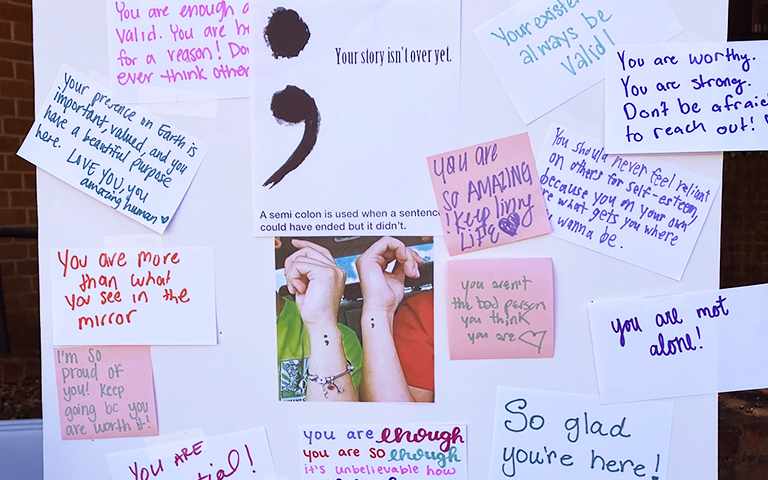 You are enough a
valid. You are he
for a reason! Don
ever think other
Your story isn't over yet.
A semi colon is used when a sentence
could have ended but it didn't.
Your existen
always be
Valid!
You are worthy.
You are strong.
Don't be afraid
to reach out!
Your presence on Earth is
important, valued, and you
have a beautiful purpose
here. LOVE YOU, you
amazing human
You are
SO AMAZING
! keep living
Life
You should never feel reliant
on others for self-esteem,
because you on your own
are what gets you where
you wanna be.
You are more
than what
you see in the
mirror
you aren't
the bad person
you think
you are
you are not
alone!
I'm so
proud of
you! Keep
going bc you
are worth it!
You ARE
ential!
you are enough
you are so enough
it's unbelievable how
So glad
you're here!